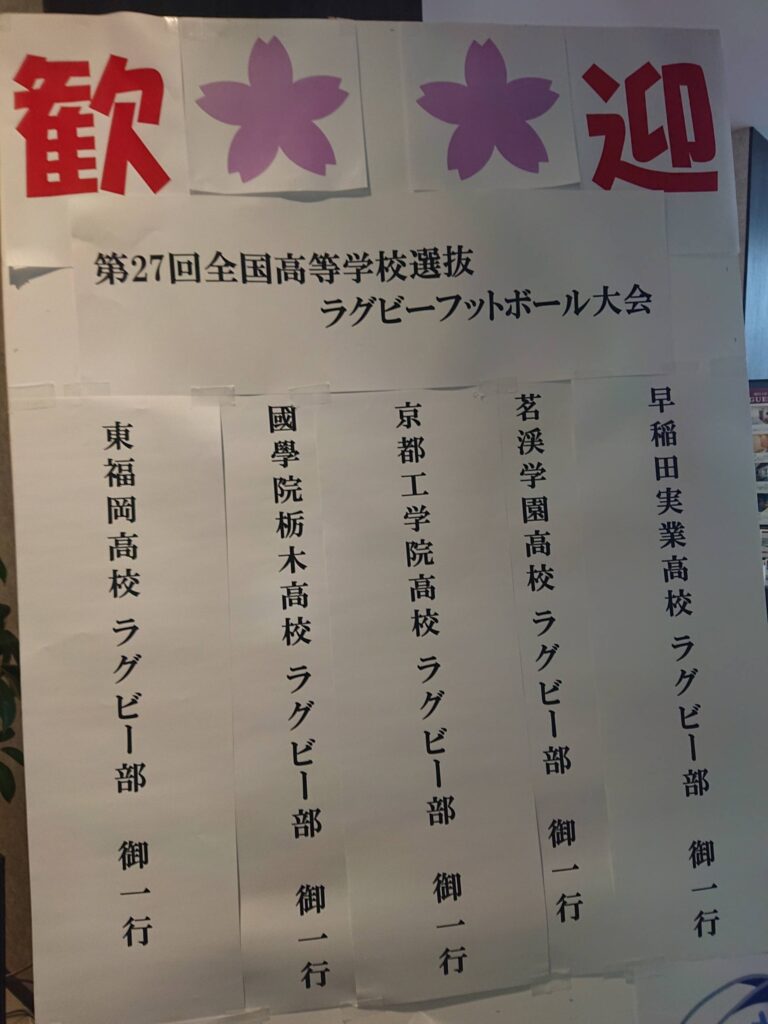 歓迎
第27回全国高等学校選抜
ラグビーフットボール大会
早稲田実業高校 ラグビー部 御一行
茗溪学園高校 ラグビー部 御一行
京都工学院高校 ラグビー部 御一行
國學院栃木高校 ラグビー部 御一行
東福岡高校 ラグビー部 御一行